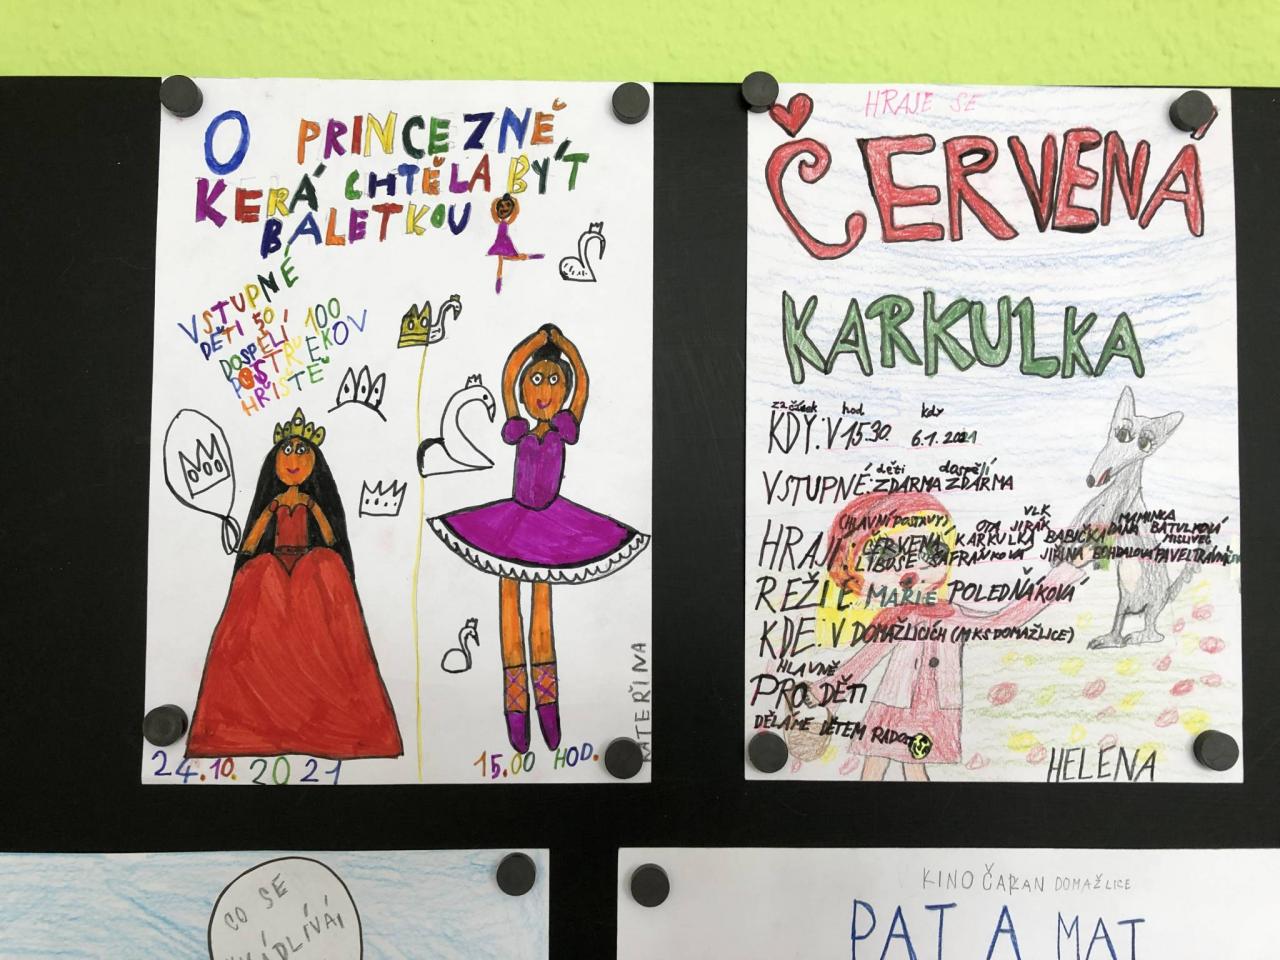 O PRINCEZNĚ
KERÁ CHTĚLA BÝT
BALETKOU
VSTUPNÉ
DĚTI 50
DOSPĚLÍ 100
POSTŘEKOV
HŘIŠTĚ
24.10. 2021
15.00 HOD.
HRAJE SE
ČERVENÁ
KARKULKA
začátek hod kdy
KDY: V 15.30. 6.1. 2021
děti dospělí
VSTUPNÉ: ZDARMA ZDARMA
(HLAVNÍ POSTAVY) VLK MAMINKA
OTA JIRÁK DANA
HRAJÍ: ČERVENÁ KARKULKA BABIČKA MISLIVEC
LIBUŠE ŠAFRÁNKOVÁ JIŘINA BOHDALOVÁ PAVEL
REŽIE MARIE POLEDŇÁKOVÁ
KDE: V DOMAŽLICÍCH (MKS DOMAŽLICE)
HLAVNĚ
PRO DĚTI
DĚLÁME DĚTEM RADOST
HELENA
CO SE
KINO ČAKAN DOMAŽLICE
PAT A MAT